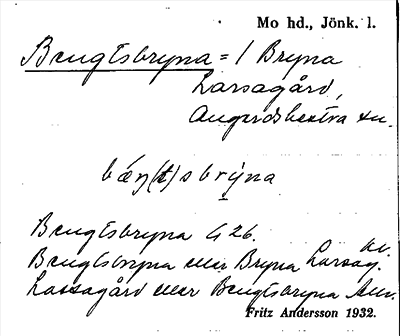 Mo hd., Jönk. l.
Bengtsbryna = 1 Bryna
Larsagård,
Angerdshestra sn.
bæŋ(t)sbryna
Bengtsbryna G 26.
Bengtsbryna eller Bryna Larsag.
Larsagård eller Bengtsbryna
Fritz Andersson 1932.